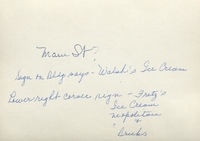 Main St?
Sign on Bldg says - Walsh's Ice Cream
Lower right corner sign - Fraty's
Ice Cream
neapolitan
&
Bricks